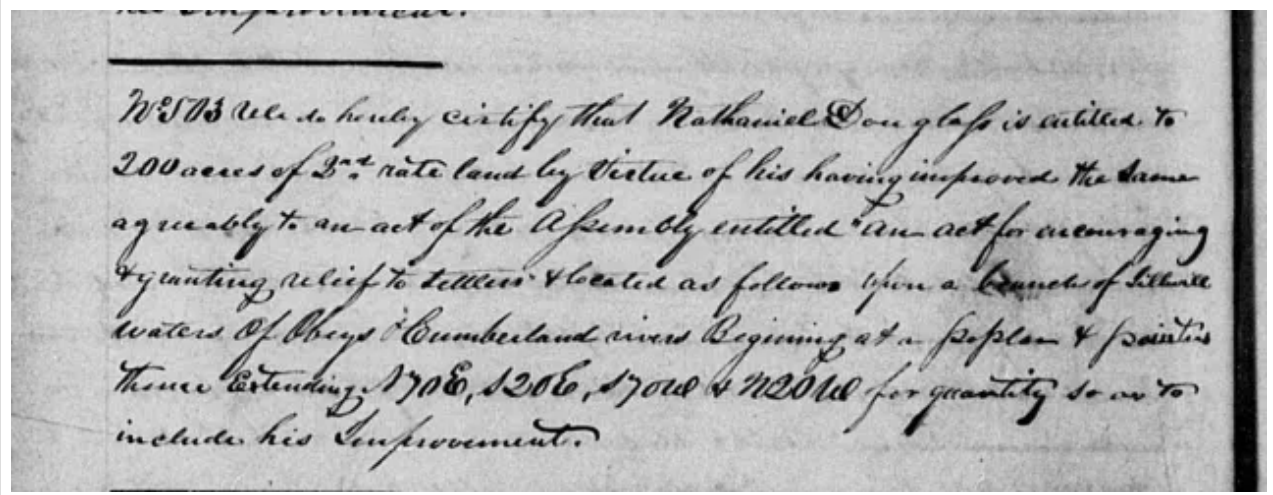 his Improvement.
No 503 We do hereby certify that Nathaniel Douglass is entitled to
200 acres of 2nd rate land by Virtue of his having improved the same
agreeably to an act of the Assembly entitled "An act for encouraging
& granting relief to settlers" & located as follows Upon a branch of
waters Of Obeys & Cumberland rivers Begining at a poplar & pointers
thence Extending N70E, S20E, S70W & N20W for quantity so as to
include his Improvement.